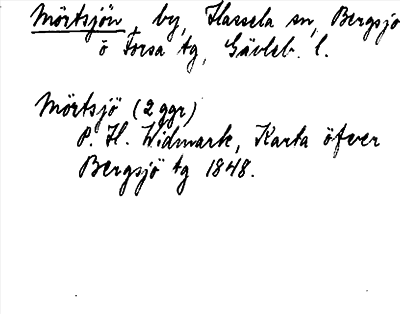 Mörtsjön, by, Hassela sn, Bergsjö
o Forsa tg, Gävleb. l.
Mörtsjö (2 ggr)
P. H. Widmark, Karta öfver
Bergsjö tg 1848.